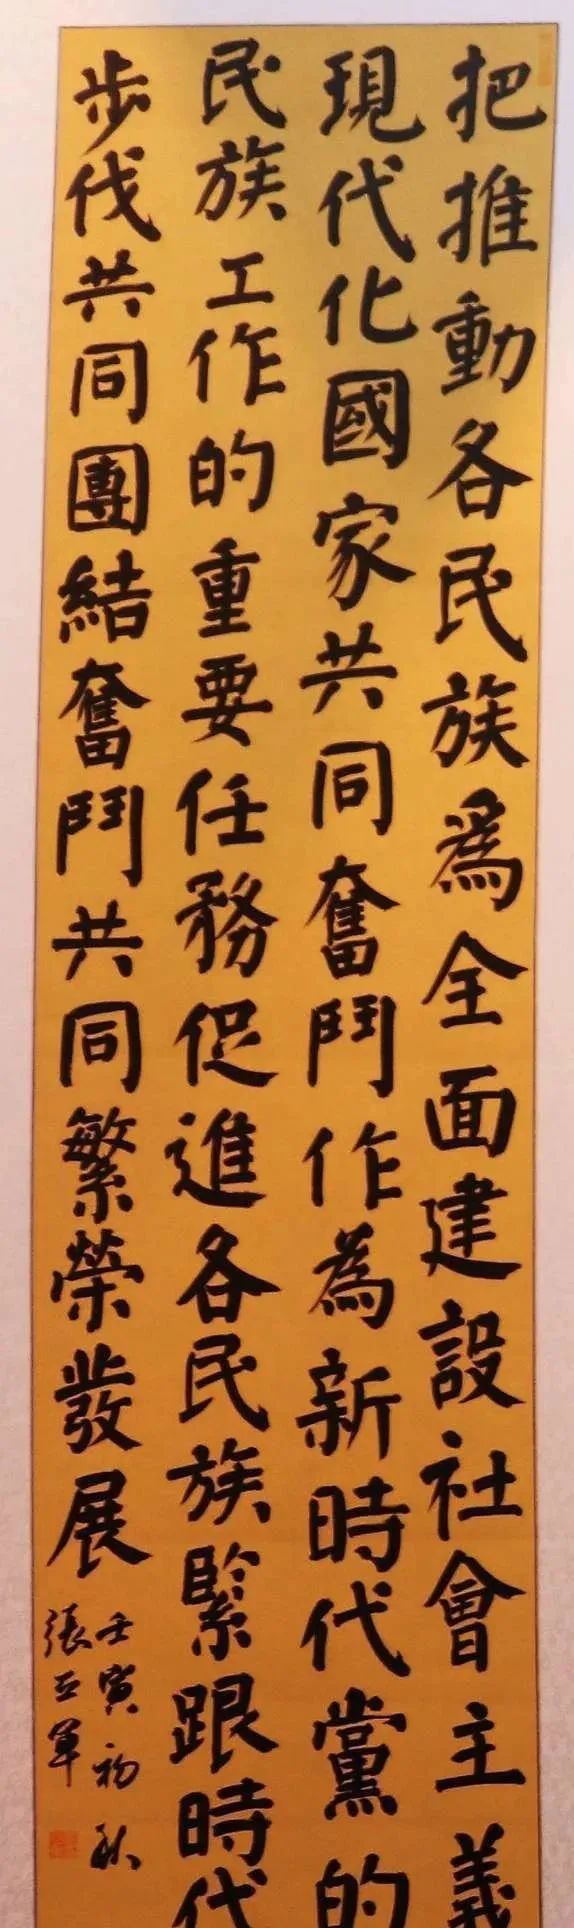 把推動各民族爲全面建設社會主義
現代化國家共同奮鬥作為新時代黨的
民族工作的重要任務促進各民族緊跟時代
步伐共同團結奮鬥共同繁榮發展
壬寅初秋
張亞軍